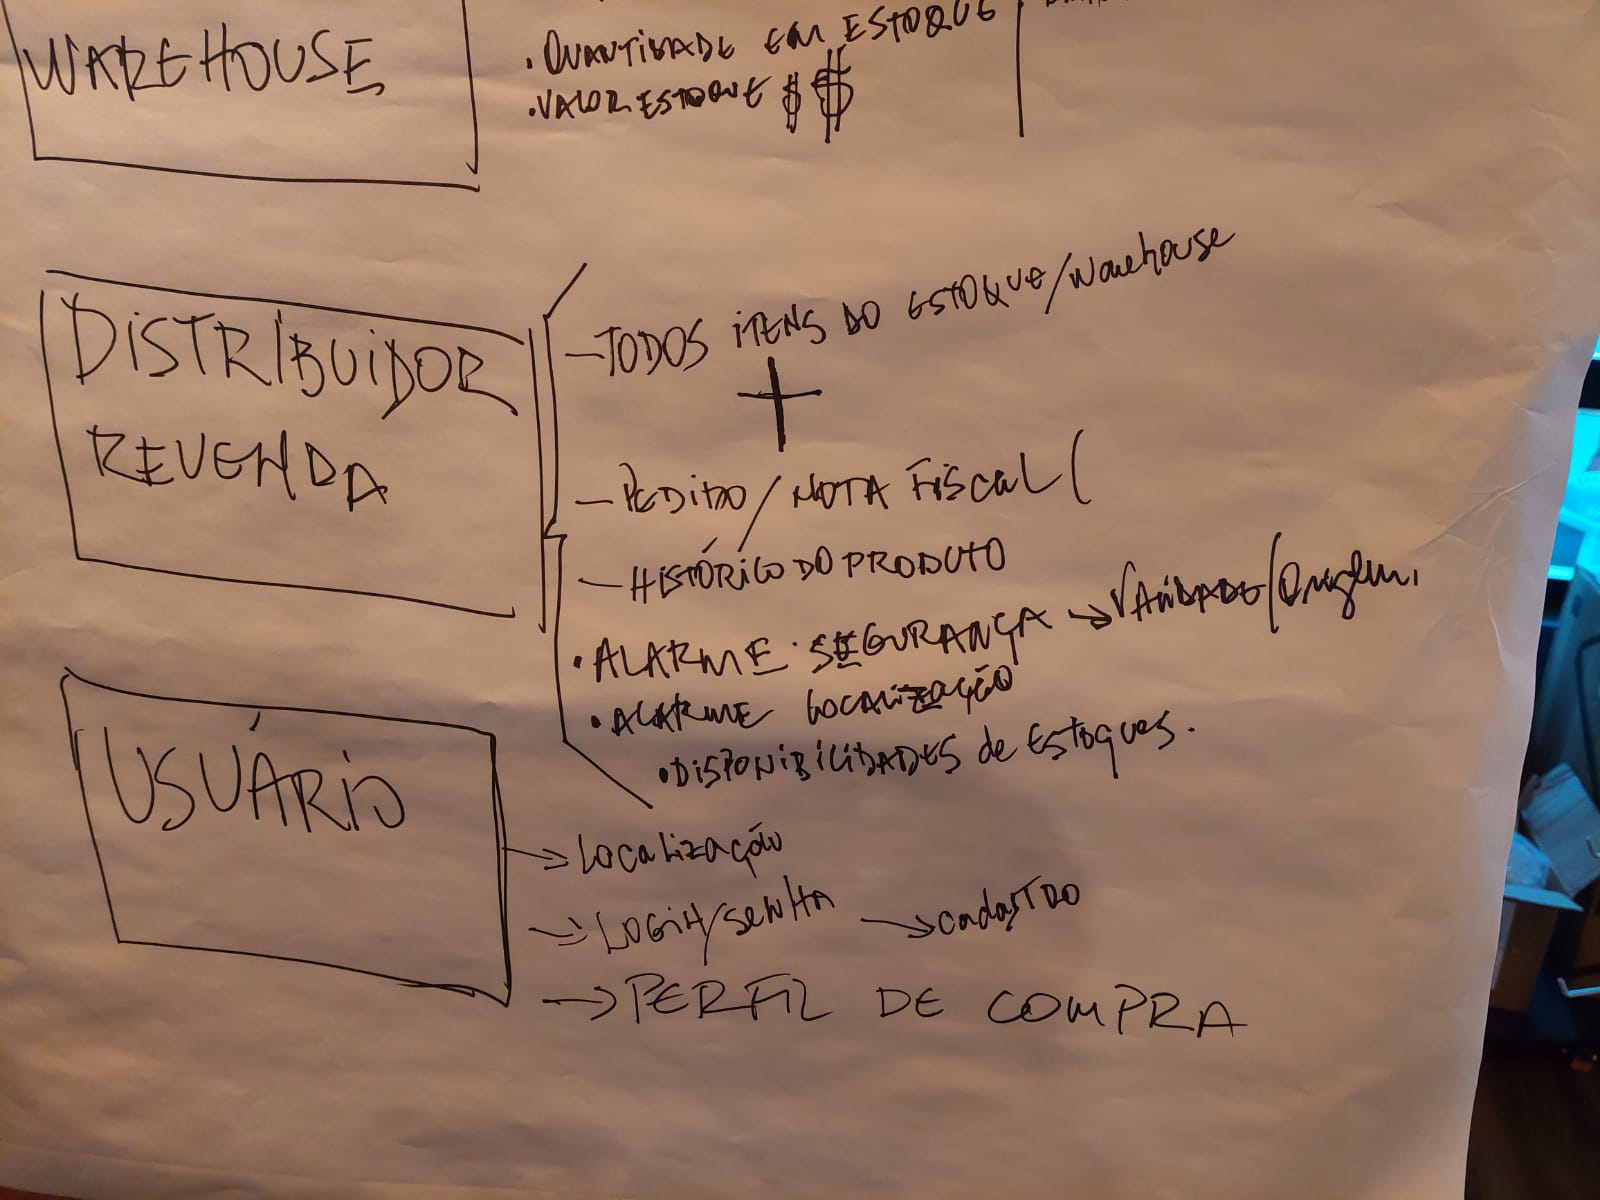 WAREHOUSE
• QUANTIDADE EM ESTOQUE
• VALOR ESTOQUE $ $
DISTRIBUIDOR
REVENDA
— TODOS ITENS DO ESTOQUE/Warehouse
+
— PEDIDO / NOTA FISCAL (
— HISTÓRICO DO PRODUTO
• ALARME • SEGURANÇA → VALIDADE/Origem.
• ALARME LOCALIZAÇÃO
• DISPONIBILIDADES de ESTOQUES.
USUÁRIO
→ Localização
→ LOGIN/SENHA → cadastro
→ PERFIL DE COMPRA